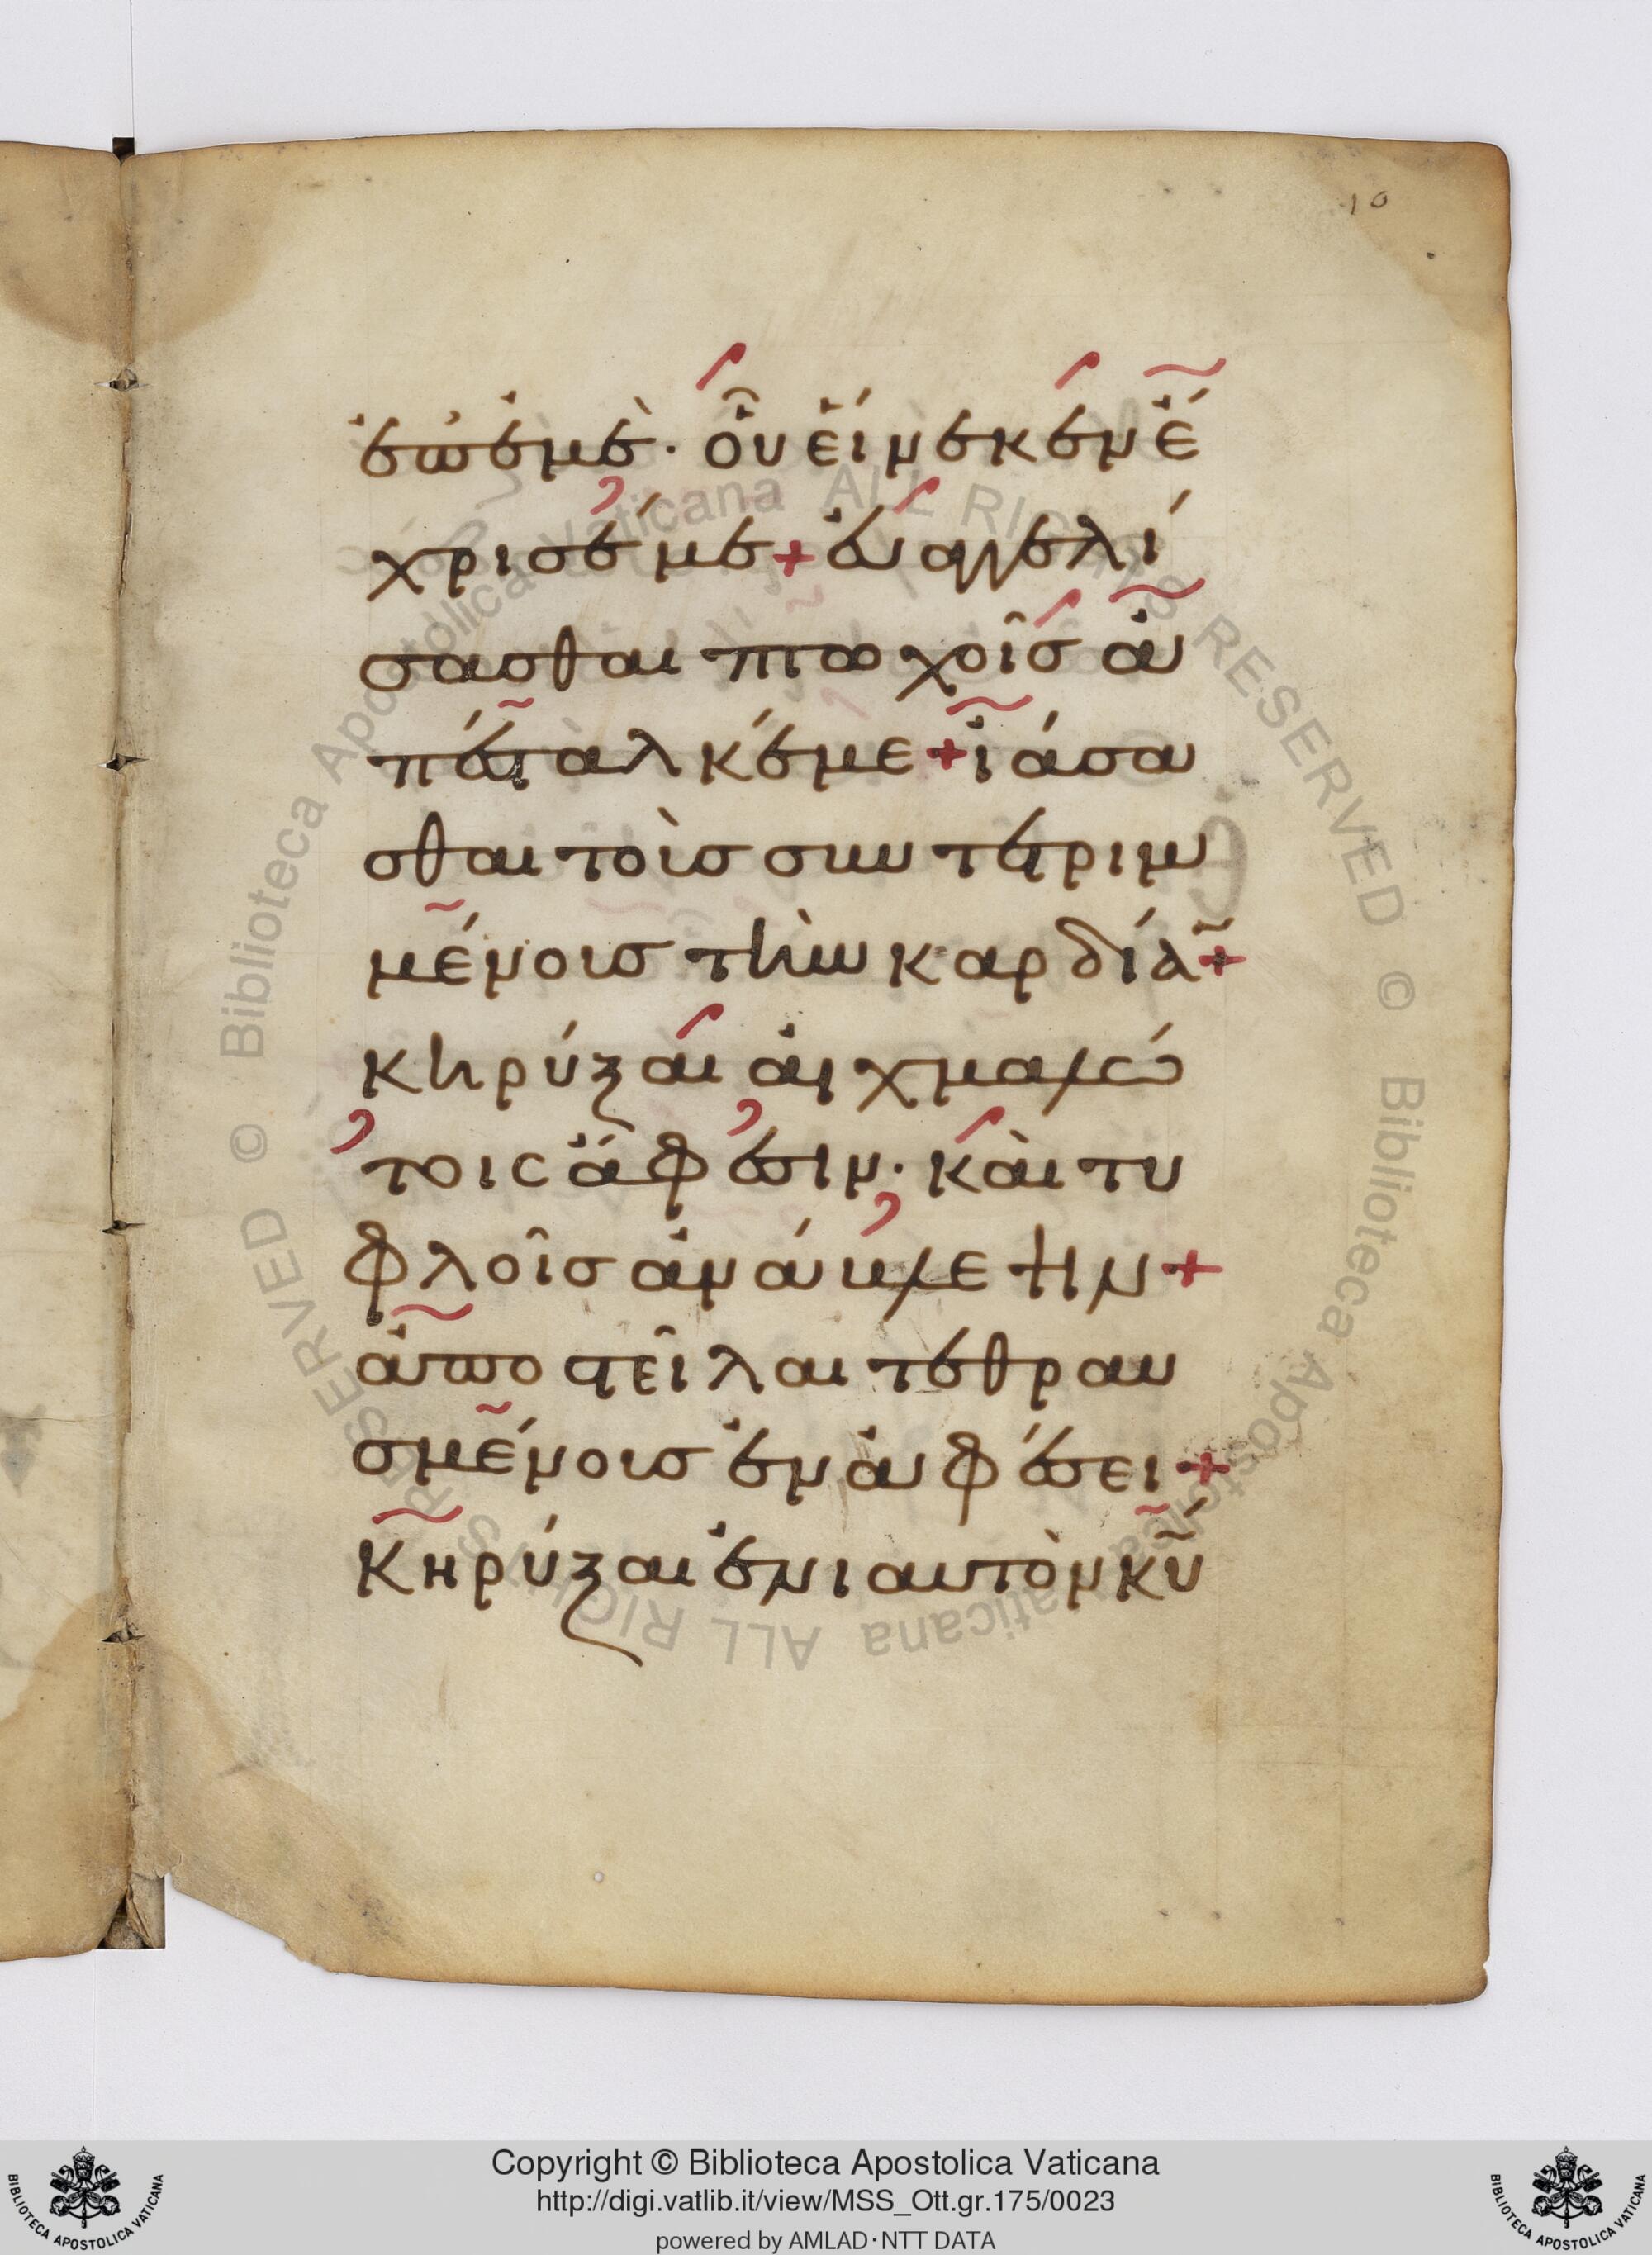 10
ἐπ' ἐμὲ· οὗ εἵνεκεν ἔ
χρισέ με + εὐαγγελί
σασθαι πτωχοῖσ ἀ
πέσταλκέ με + ἰάσα
σθαι τοὺσ συντετριμ
μένουσ τὴν καρδίαν +
κηρύξαι αἰχμαλώ
τοις ἄφεσιν· καὶ τυ
φλοῖσ ἀνάβλεψιν +
ἀποστεῖλαι τεθραυ
σμένουσ ἐν ἀφέσει +
κηρύξαι ἐνιαυτὸν κυ̅
Copyright © Biblioteca Apostolica Vaticana
http://digi.vatlib.it/view/MSS_Ott.gr.175/0023
powered by AMLAD·NTT DATA
BIBLIOTECA APOSTOLICA VATICANA
BIBLIOTECA APOSTOLICA VATICANA
© Biblioteca Apostolica Vaticana ALL RIGHTS RESERVED © Biblioteca Apostolica Vaticana ALL RIGHTS RESERVED